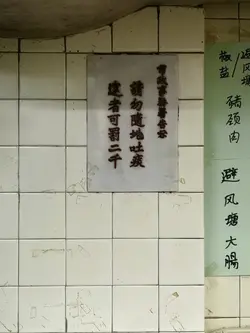 市政事務署告示
請勿隨地吐痰
違者可罰二千
椒盐/避风塘
豬颈肉
避风塘大腸